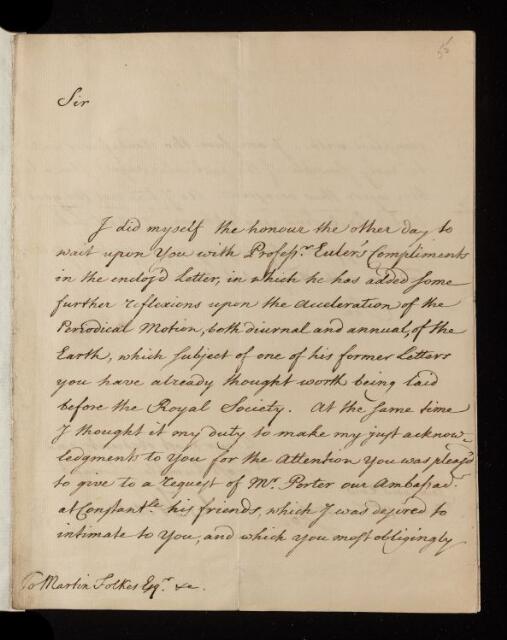 Sir
I did myself the honour the other day to
wait upon You with Profess.r Euler's Compliments
in the enclos'd Letter, in which he has added some
further reflexions upon the Acceleration of the
Periodical Motion, both diurnal and annual, of the
Earth, which subject of one of his former Letters
you have already thought worth being laid
before the Royal Society. At the same time
I thought it my duty to make my just acknow-
ledgments to You for the Attention You was pleas'd
to give to a request of Mr. Porter our Ambassad.r
at Constant.le his friends, which I was desired to
intimate to You, and which you most obligingly
To Martin Folkes Esq.r &c.